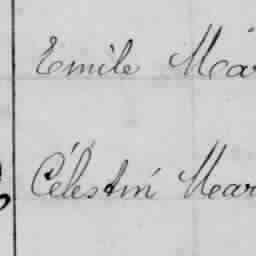 Emile Mar
Célestin Mar